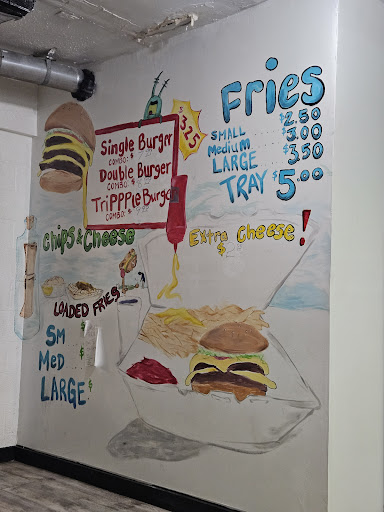 Single Burger
COMBO: $
Double Burger
COMBO: $
TriPPPle Burger
COMBO: $
$3.25
Fries
SMALL $2.50
Medium $3.00
LARGE $3.50
TRAY $5.00
Chips & Cheese
Extra Cheese!
$
LOADED FRIES
Sm $
MeD $
LARGE $